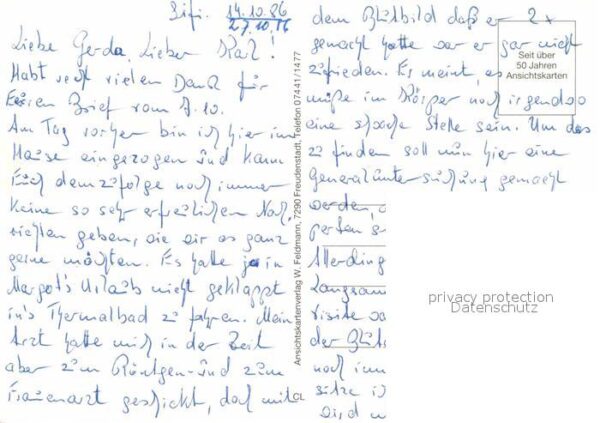 14.10.86
27.10.86
Liebe Gerda, Lieber Karl!
Habt recht vielen Dank für
Euren Brief vom 7.10.
Am Tag vorher bin ich hier im
Hause eingezogen und kann
Euch demzufolge noch immer
keine so sehr erfreulichen Nach-
richten geben, die wir es ganz
gerne möchten. Es hatte ja in
Margot's Urlaub nicht geklappt
in's Thermalbad zu fahren. Mein
Arzt hatte mich in der Zeit
aber zum Röntgen und zum
Frauenarzt geschickt, doch mit
dem Blutbild daß er 2x
gemacht hatte war er gar nicht
zufrieden. Er meint, es
müße im Körper noch irgendwo
eine schwache Stelle sein. Um das
zu finden soll nun hier eine
Generaluntersuchung gemacht
werden,
Allerding
Langsam
visite
der Blut
noch imm
sitze
Ansichtskartenverlag W. Feldmann, 7290 Freudenstadt, Telefon 07441/1477
CL
Seit über
50 Jahren
Ansichtskarten
privacy protection
Datenschutz